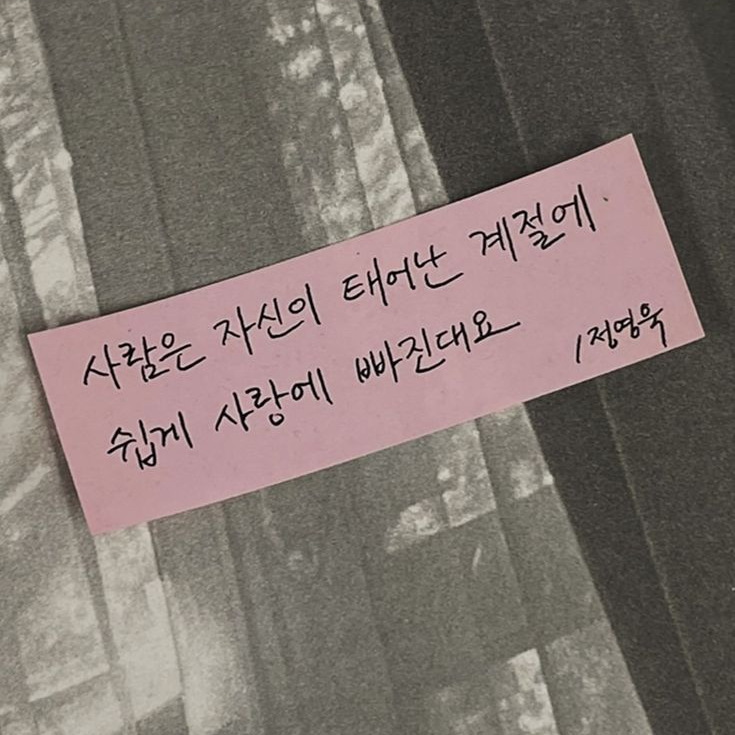 사람은 자신의 태어난 계절에
쉽게 사랑에 빠진대요
/정영욱